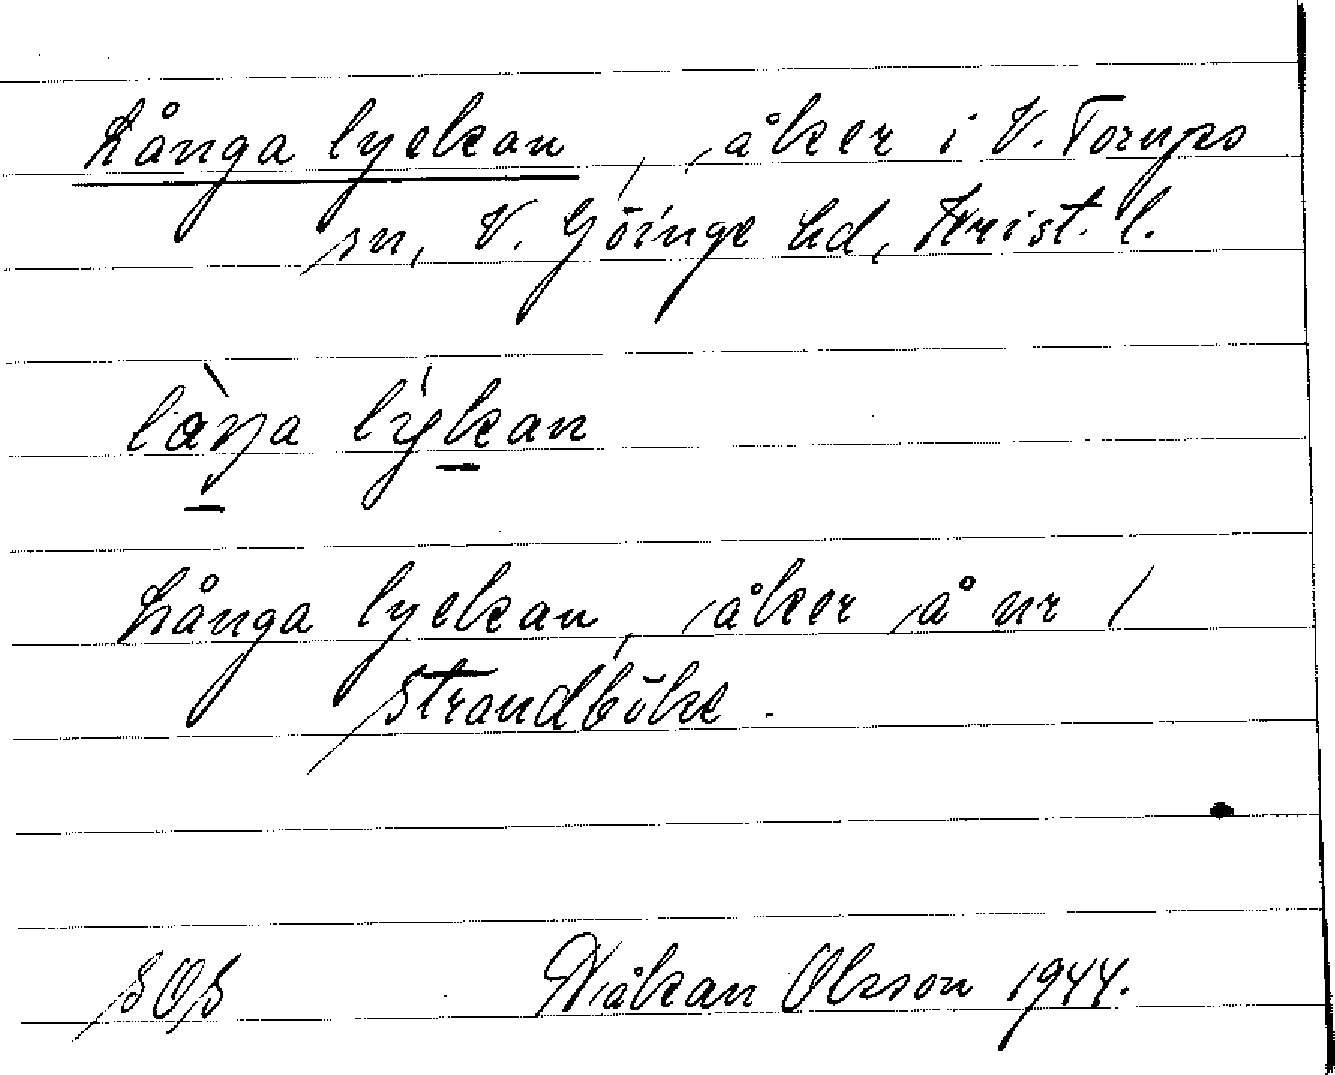 Långa lyckan, åker i V. Torups
sn, V. Göinge hd, Krist. l.
làŋa lýkan
Långa lyckan, åker å nr 1
Strandböke.
SOS Håkan Olsson 1944.